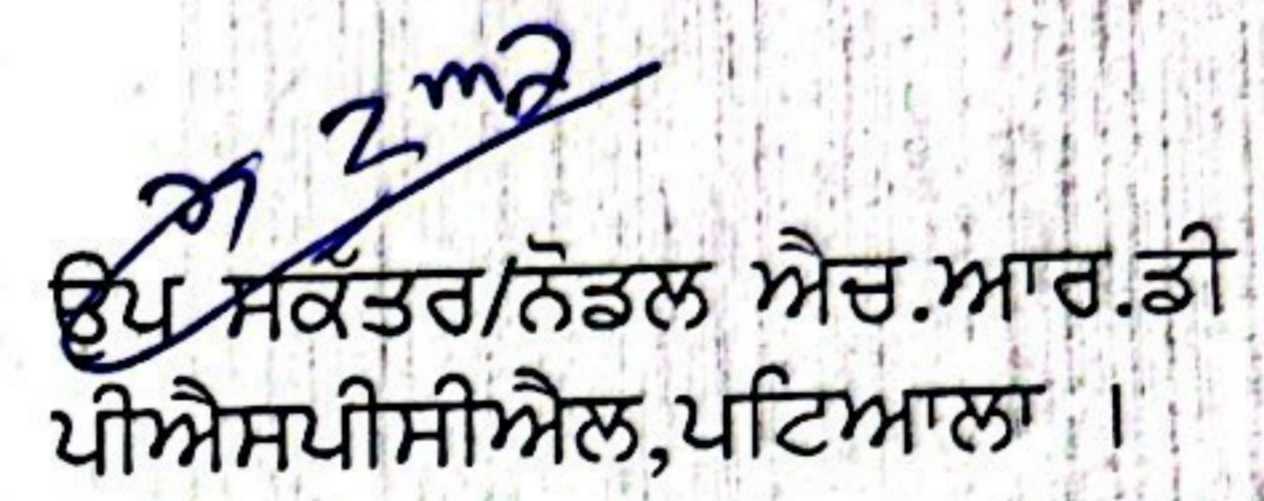 ਉਪ ਸਕੱਤਰ/ਨੋਡਲ ਐਚ.ਆਰ.ਡੀ
ਪੀਐਸਪੀਸੀਐਲ,ਪਟਿਆਲਾ ।